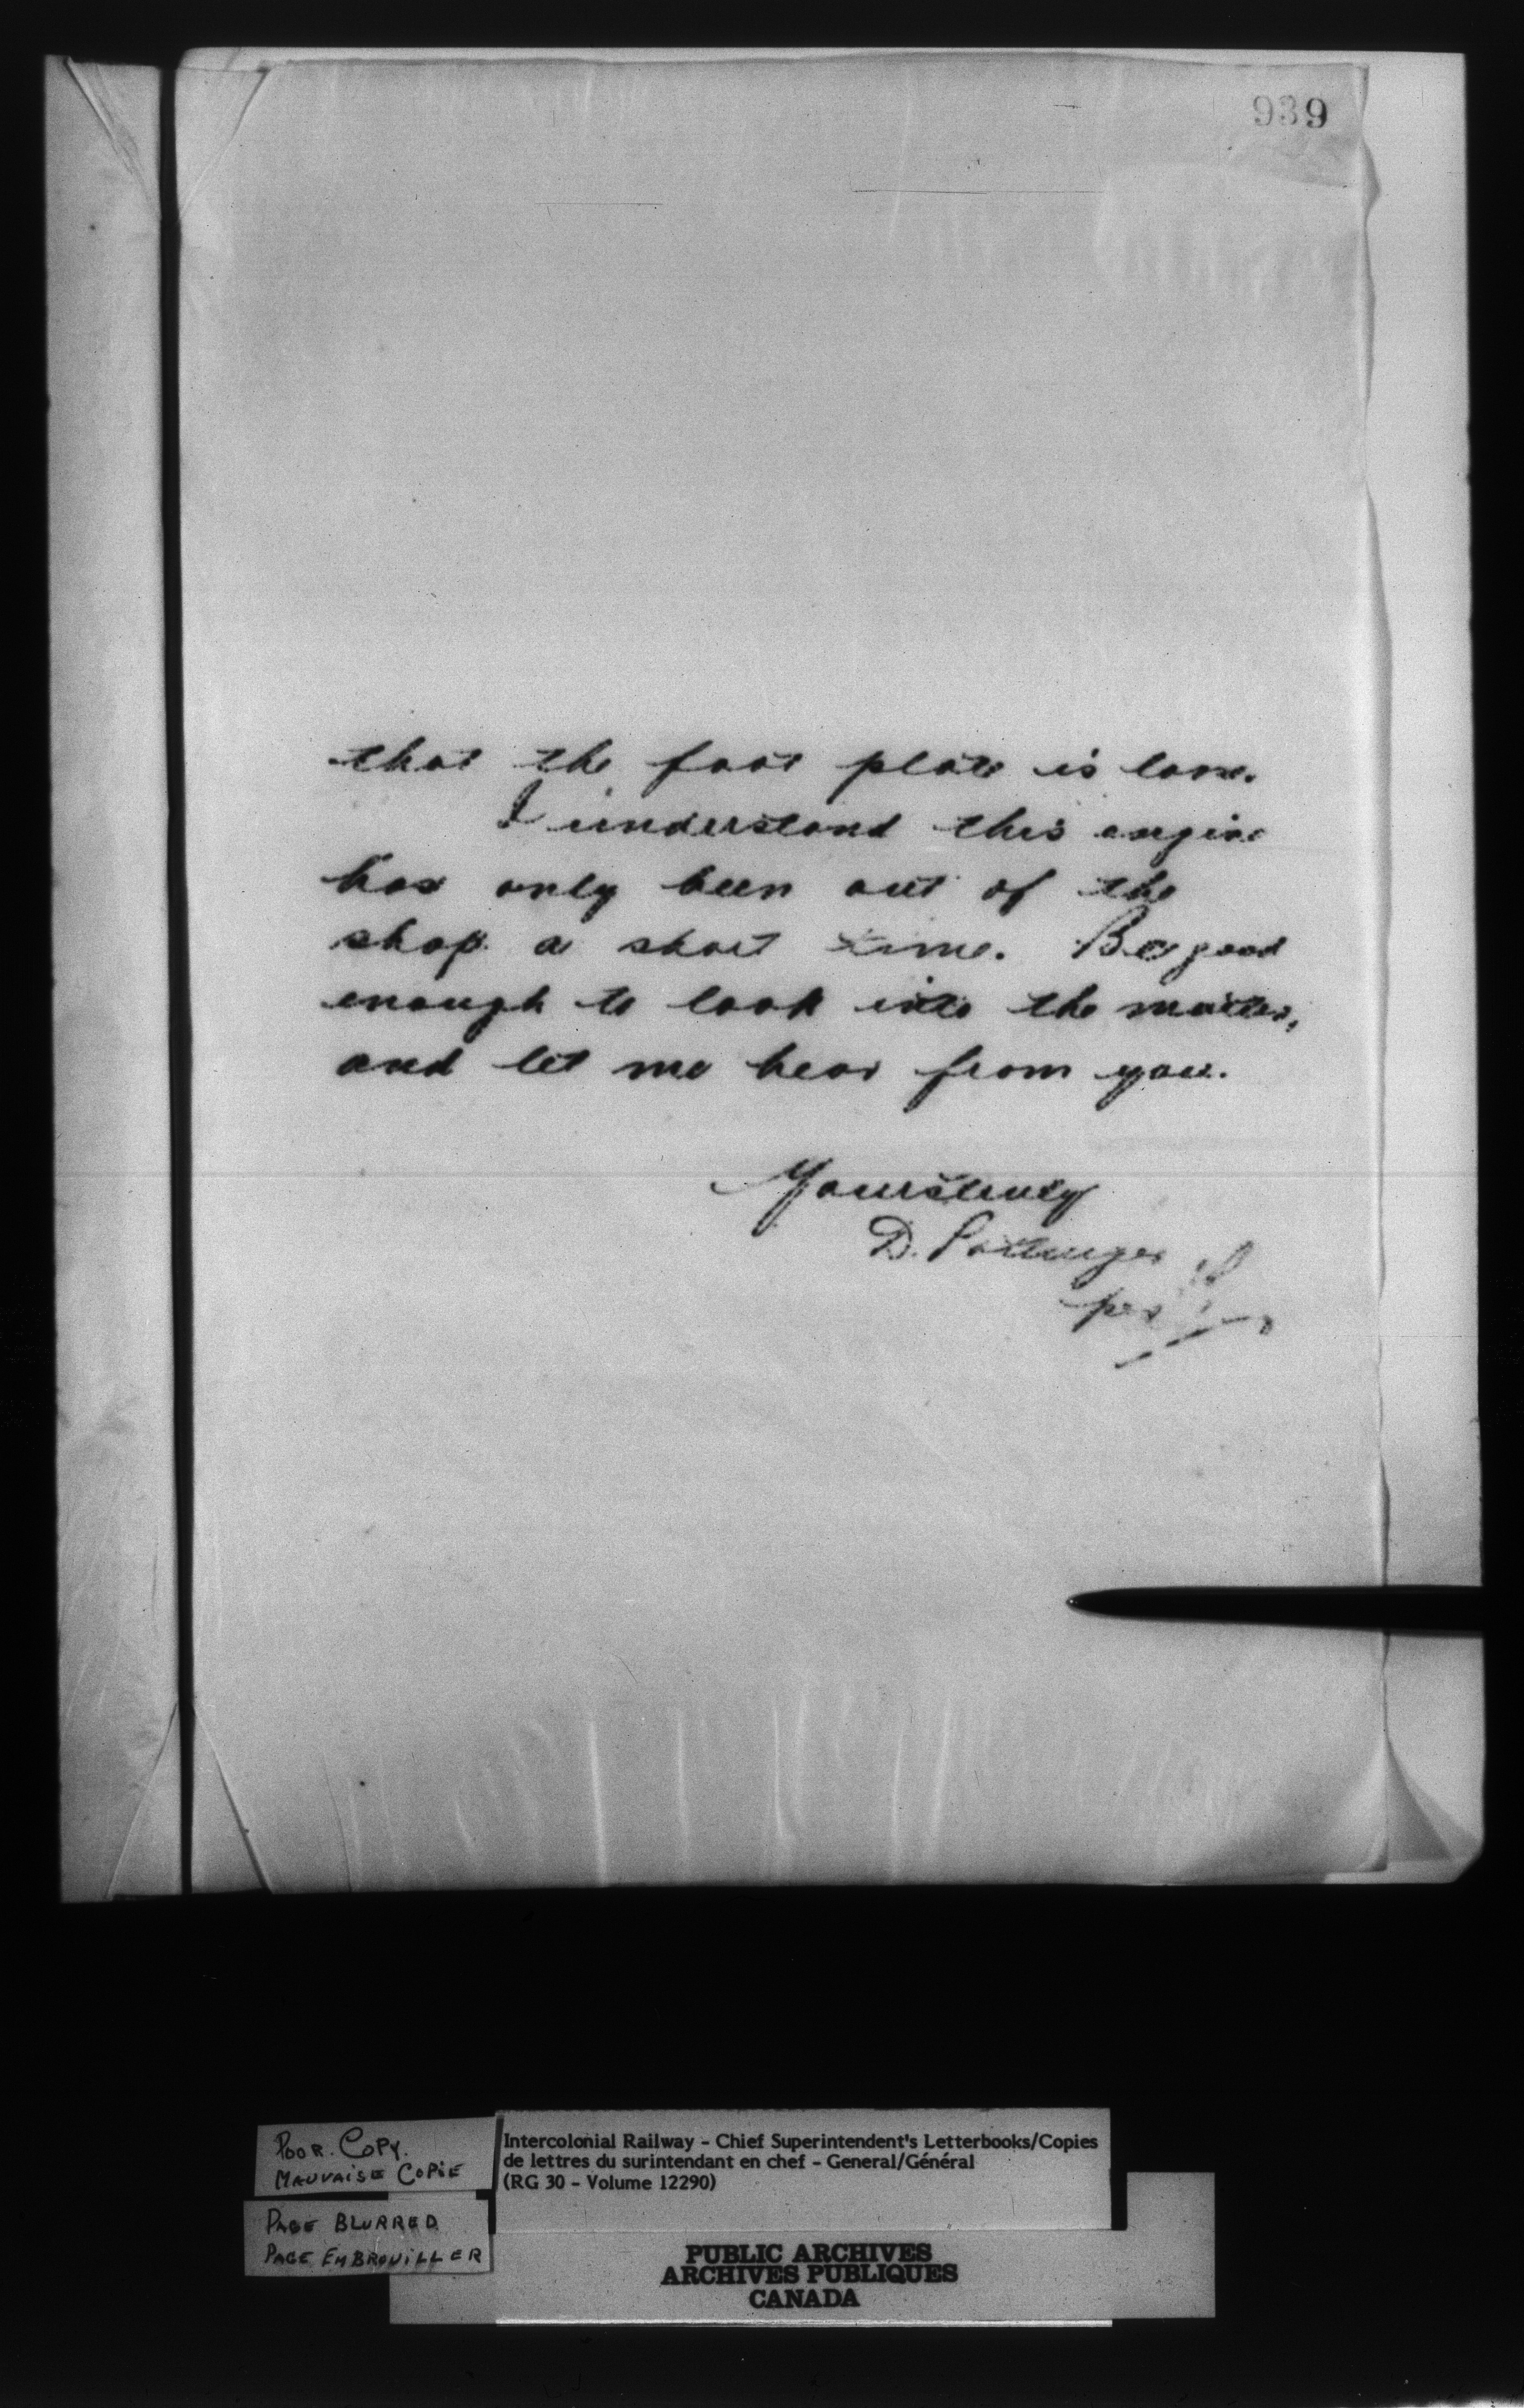 939
that the foot plate is loose.
I understand this engine
has only been out of the
shop a short time. Be good
enough to look into the matter,
and let me hear from you.
Yours truly
D. Pottinger
per
POOR. COPY.
MAUVAISE COPIE
PAGE BLURRED
PAGE EMBROUILLER
Intercolonial Railway - Chief Superintendent's Letterbooks/Copies
de lettres du surintendant en chef - General/Général
(RG 30 - Volume 12290)
PUBLIC ARCHIVES
ARCHIVES PUBLIQUES
CANADA